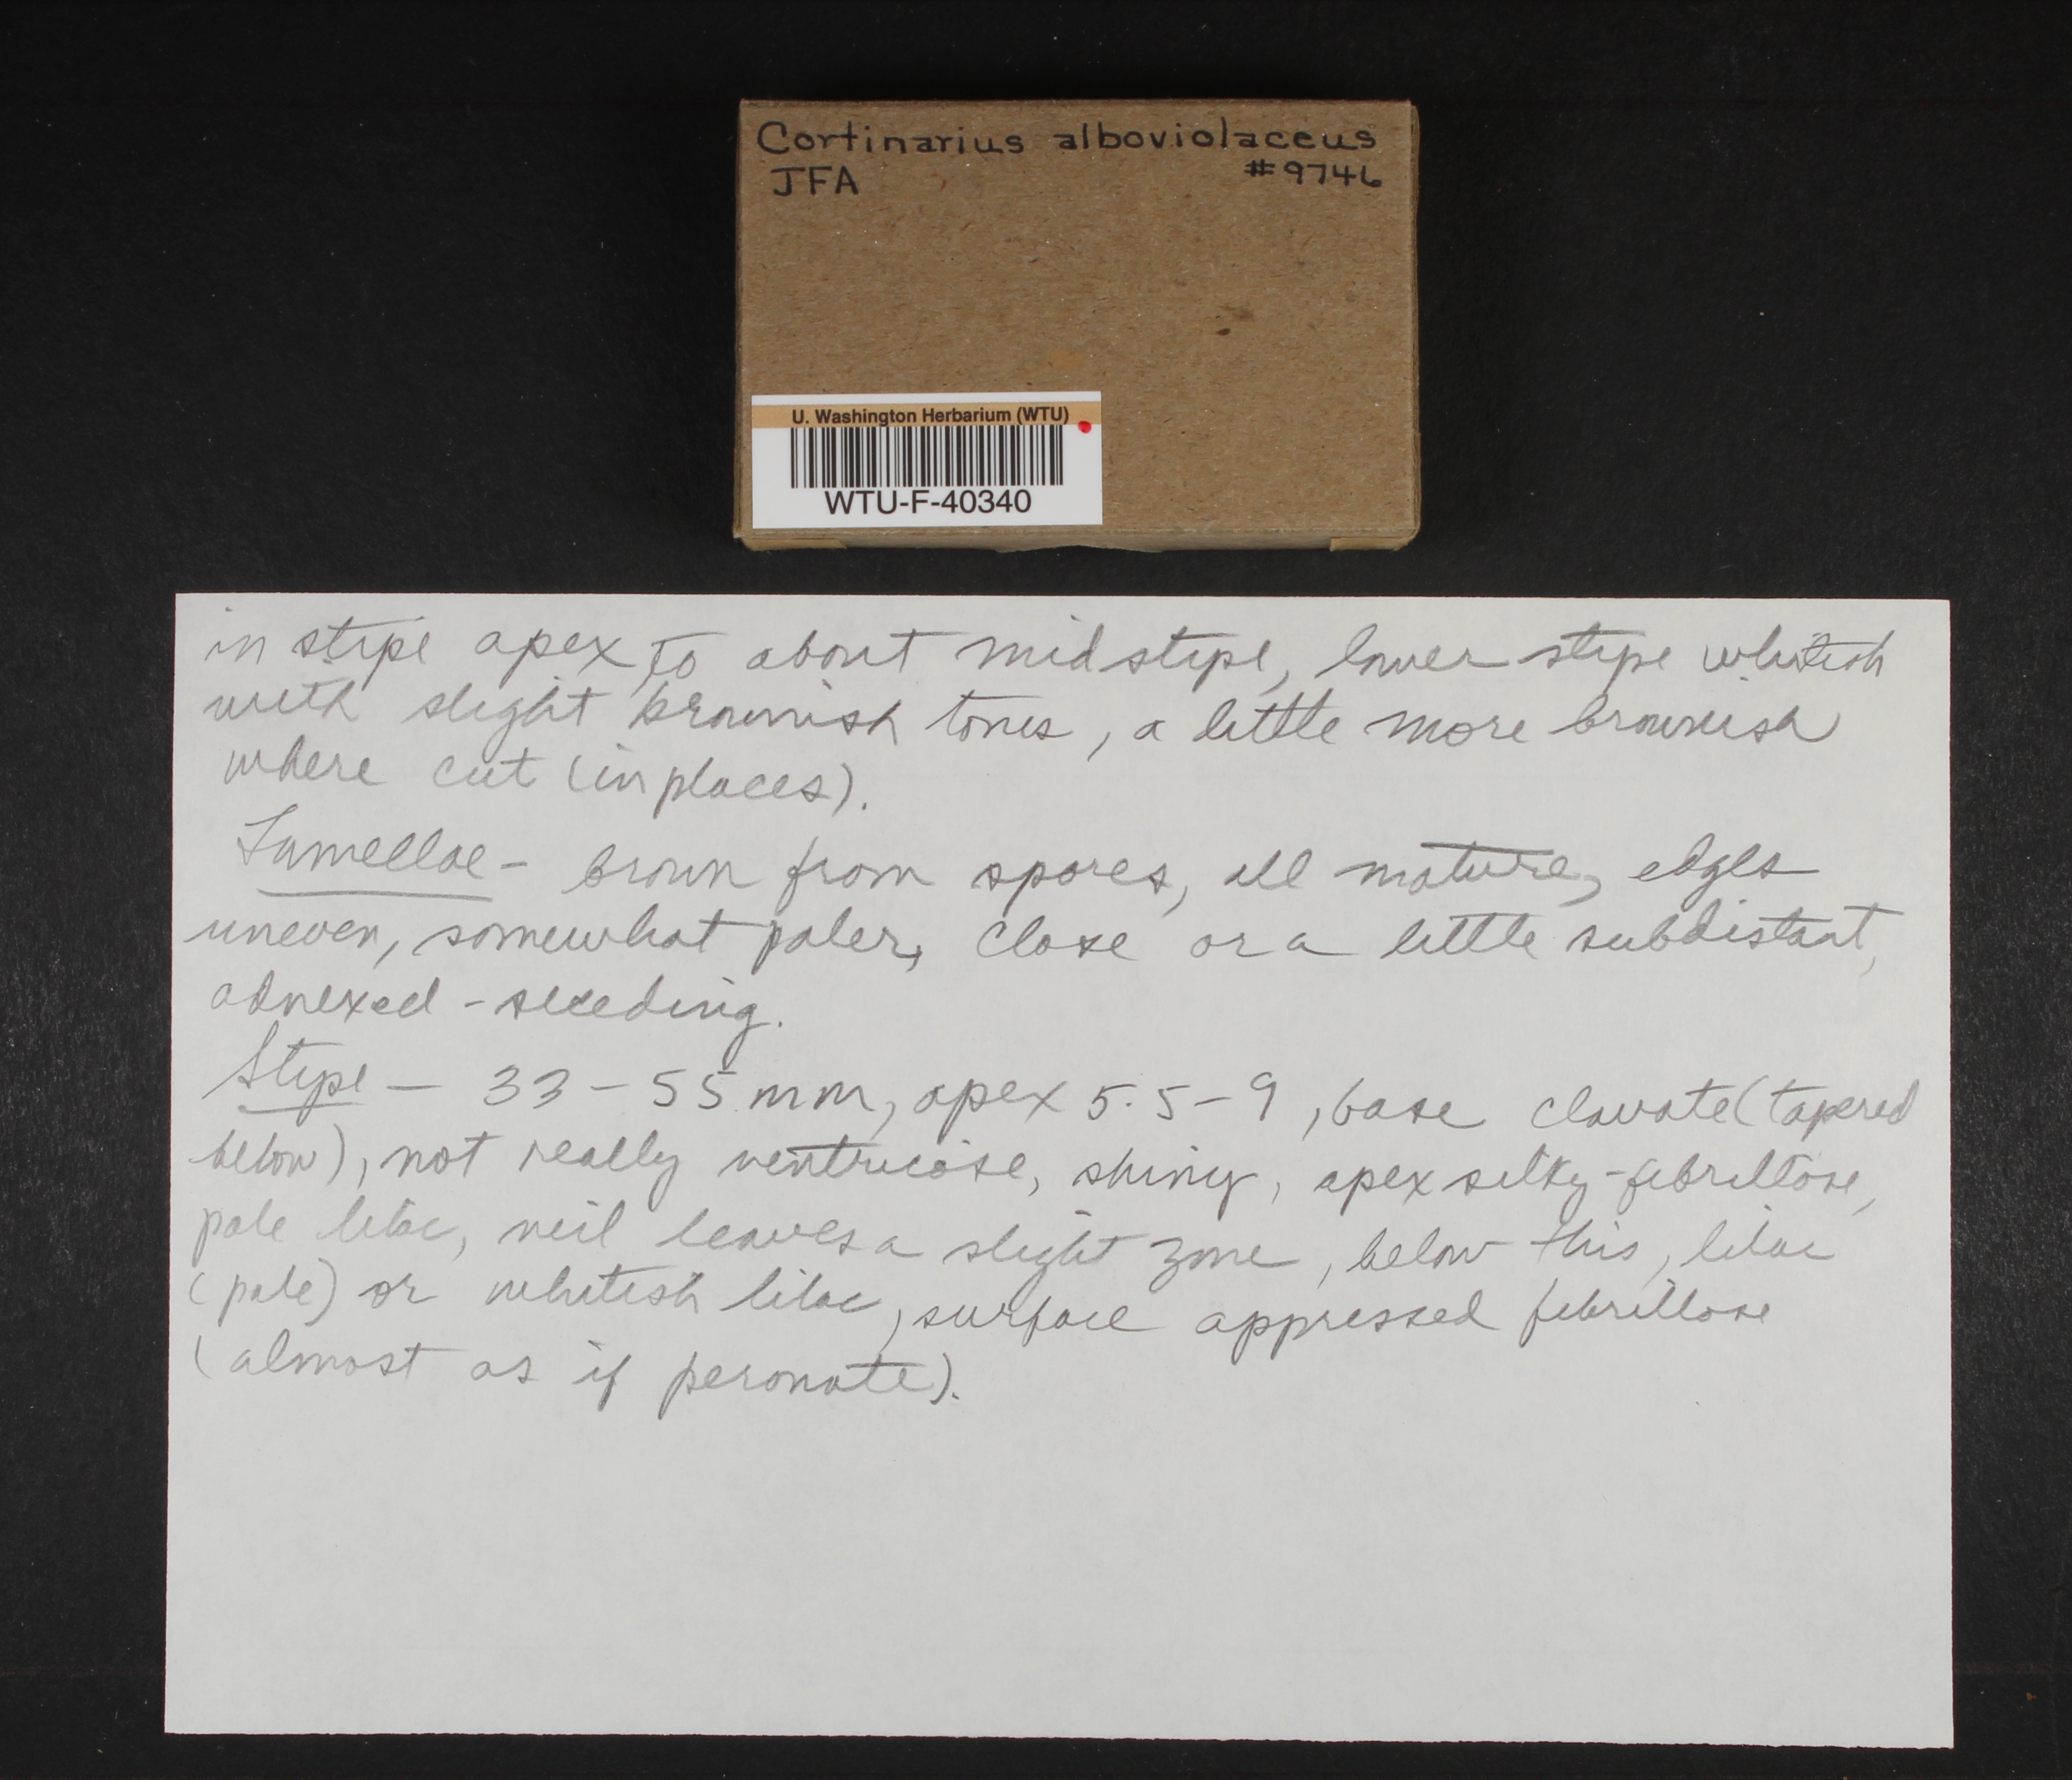 Cortinarius alboviolaceus
JFA #9746
U. Washington Herbarium (WTU)
WTU-F-40340
in stipe apex to about midstipe, lower stipe whitish
with slight brownish tones, a little more brownish
where cut (in places).
Lamellae - brown from spores, all mature, edges
uneven, somewhat paler, close or a little subdistant,
adnexed - seceding.
Stipe — 33 - 55 mm, apex 5.5 - 9, base clavate (tapered
below), not really ventricose, shiny, apex silky-fibrillose,
pale lilac, veil leaves a slight zone, below this, lilac
(pale) or whitish lilac, surface appressed fibrillose
(almost as if peronate).